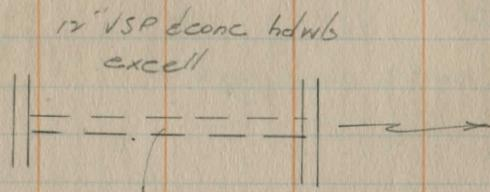 12" VSP & conc hdwls
excell